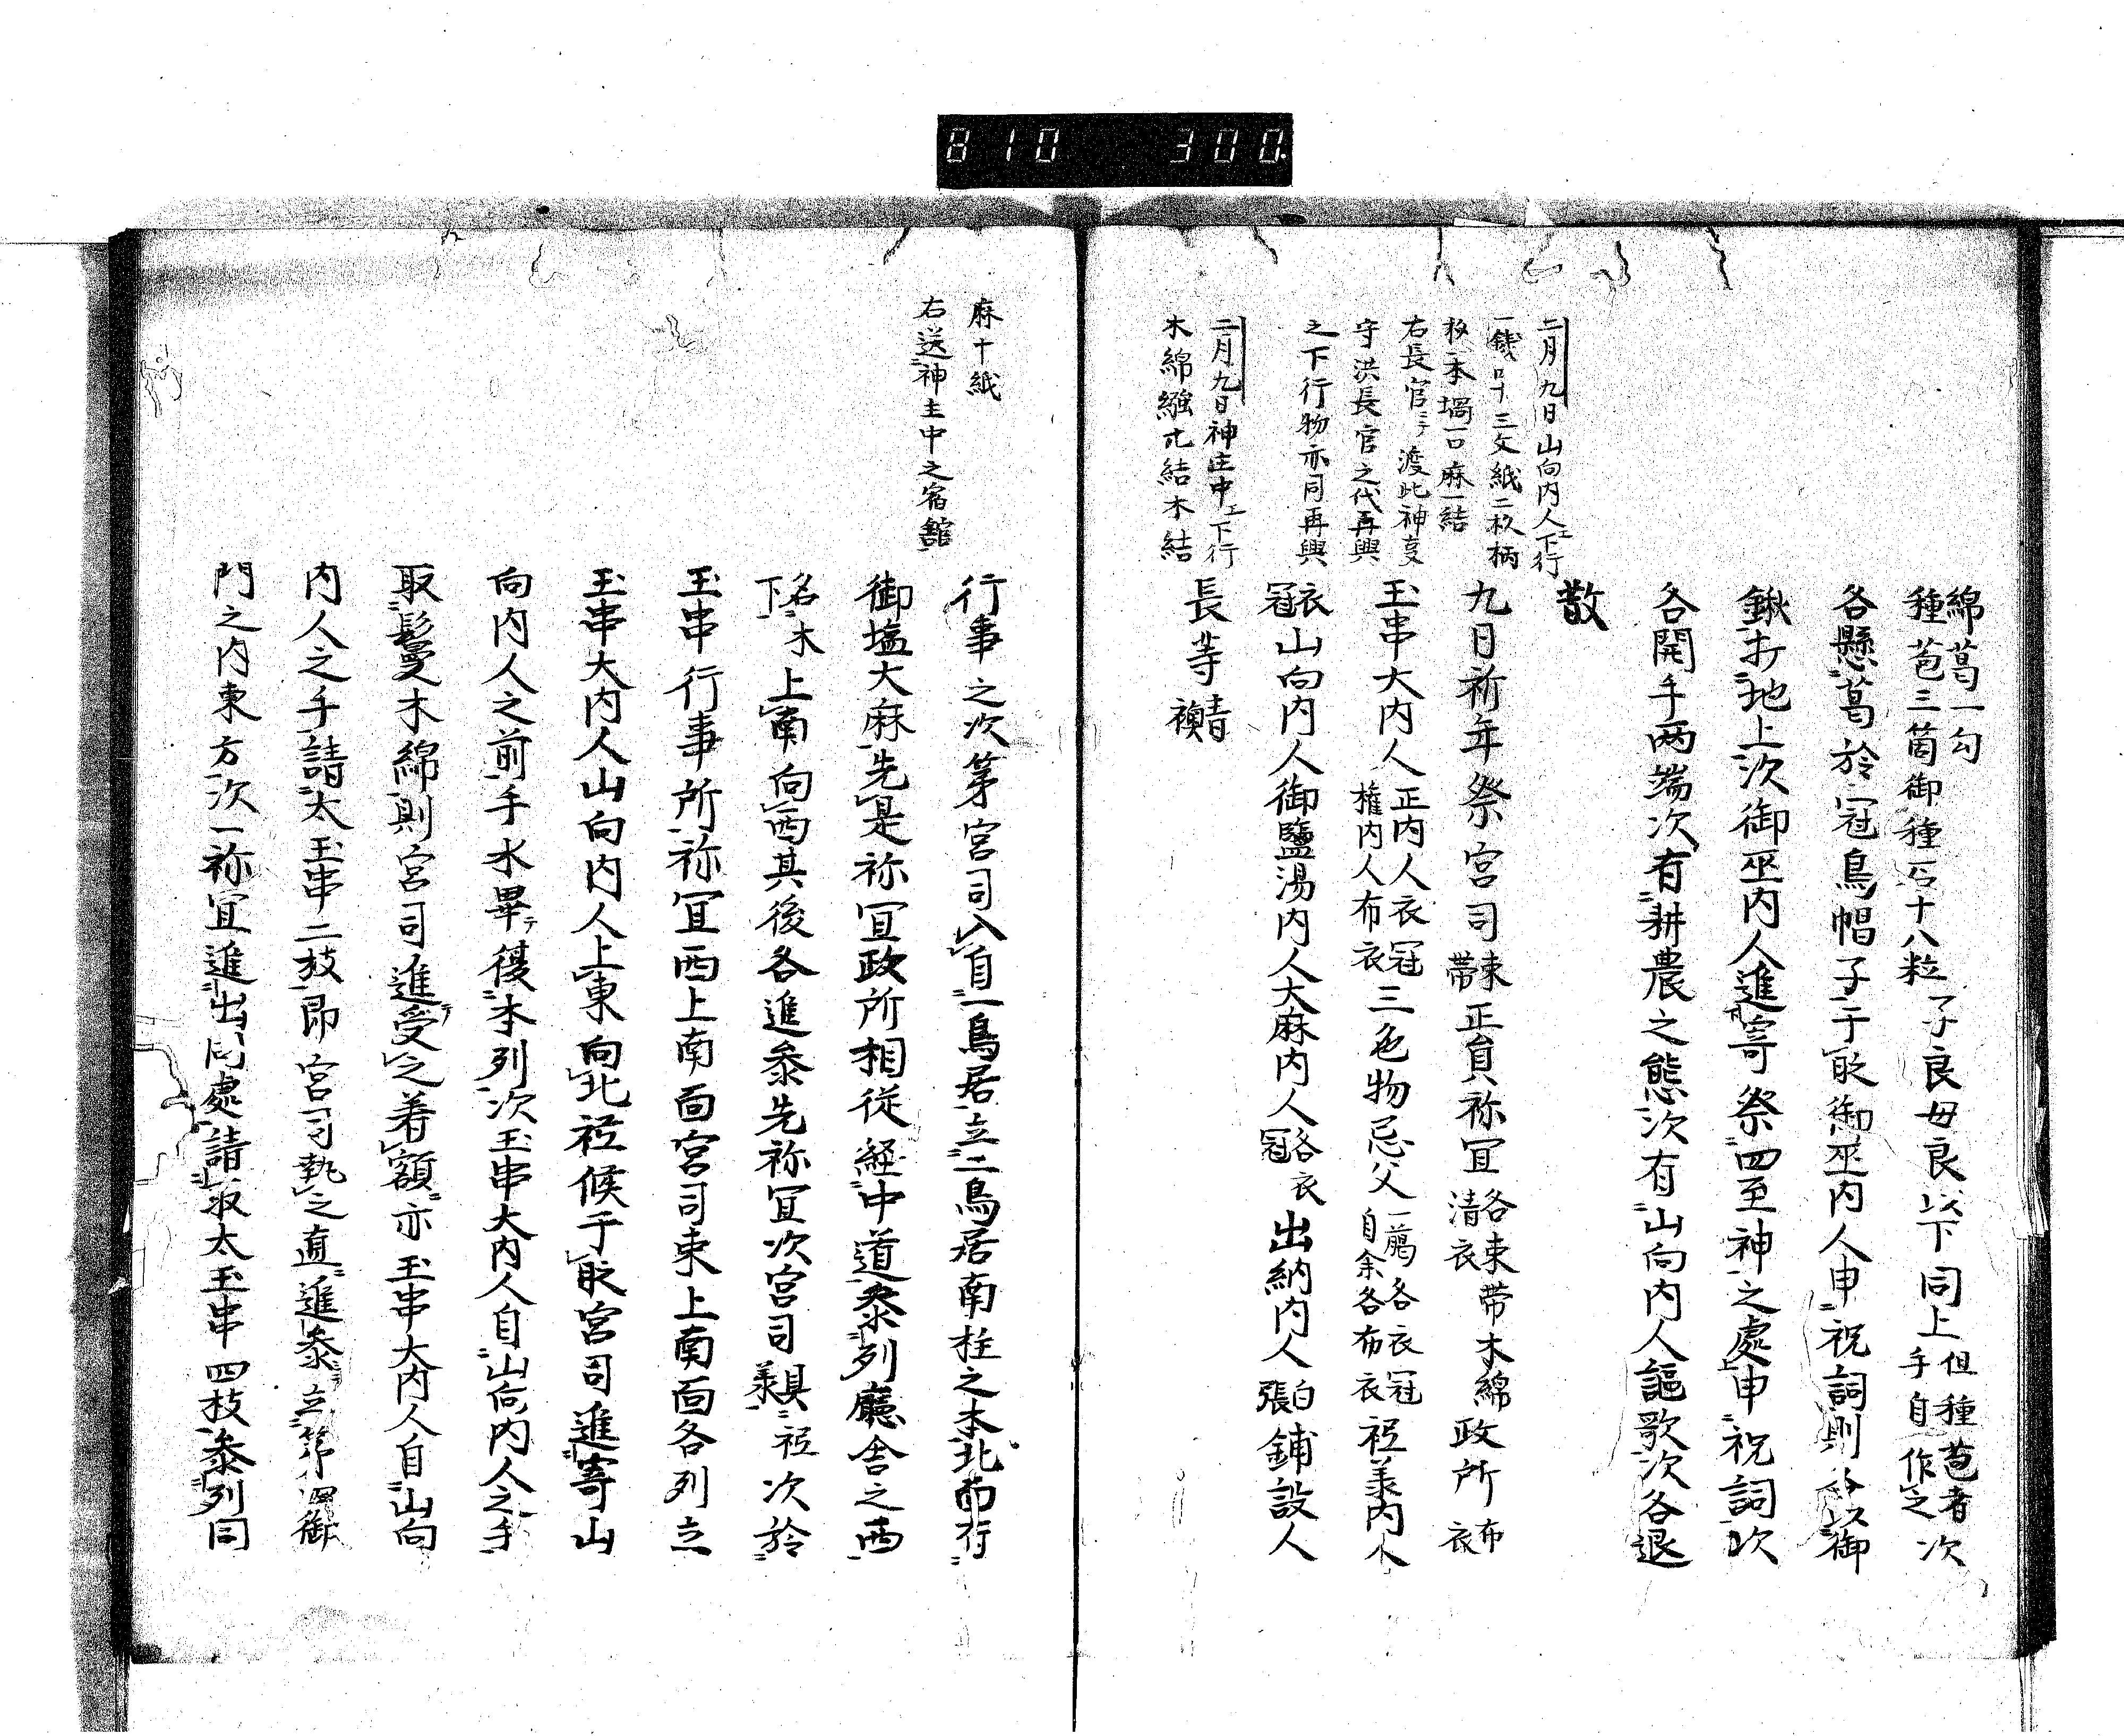 810 300.
綿葛一勾
種苞三箇御種石十八粒子良母良以下同上但種苞者手自作之次
各懸葛於冠烏帽子于時御巫内人申祝詞則各以御
鍬打地上次御巫内人進寄祭四至神之處申祝詞次
各開手両端次有耕農之態次有山向内人謳歌次各退
散
九日祈年祭宮司束帶正員祢冝各束帯木綿清衣政所布衣
玉串大内人正内人衣冠権内人布衣三色物忌父一﨟各衣冠自余各布衣祗羕内人
衣冠山向内人御鹽湯内人大麻内人各衣冠出納内人白張鋪設人
長等青襖
二月九日山向内人エ下行
一錢四十三文紙二枚柄
杓一本堝一口麻一結
右長官ニテ渡此神事
守洪長官之代再興
之下行物亦同再興
二月九日神主中エ下行
木綿繦十結木結
麻十紙
右送神主中之宿舘
行事之次第宮司入自一鳥居立二鳥居南柱之本北面行
御塩大麻先是祢冝政所相従経中道参列廳舎之西
名木下上南向西其後各進参先祢冝次宮司具羕祗次於
玉串行事所祢冝西上南面宮司東上南面各列立
玉串大内人山向内人上東向北祗候于時宮司進寄山
向内人之前手水畢テ復本列次玉串大内人自山向内人之手
取鬘木綿則宮司進受之着額亦玉串大内人自山向
内人之手請太玉串二枝即宮司執之直進参立第四御
門之内東方次一祢冝進出同處請取太玉串四枝参列同